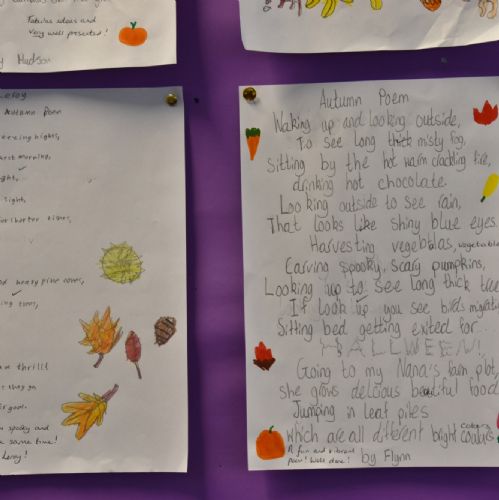 Fabulous ideas and
very well presented!
Hudson
Leroy
Autumn Poem
nights,
morning,
sight,
and heavy pine cones,
thrill!
they go
good.
spooky and
same time!
Leroy!
Autumn Poem
Waking up and looking outside,
To see long thick misty fog,
Sitting by the hot warm crackling fire,
drinking hot chocolate.
Looking outside to see rain,
That looks like shiny blue eyes.
Harvesting vegebblas, vegetable
Carving spooky, scary pumpkins,
Looking up to see long thick tree
If look up you see birds migrat
Sitting bed getting exited for...
HALLWEEN!
Going to my Nana's farm plot,
she grows delcious beautiful food
Jumping in leaf piles
which are all different bright coulars colours
A fun and vibrant
poem! Well done!
by Flynn